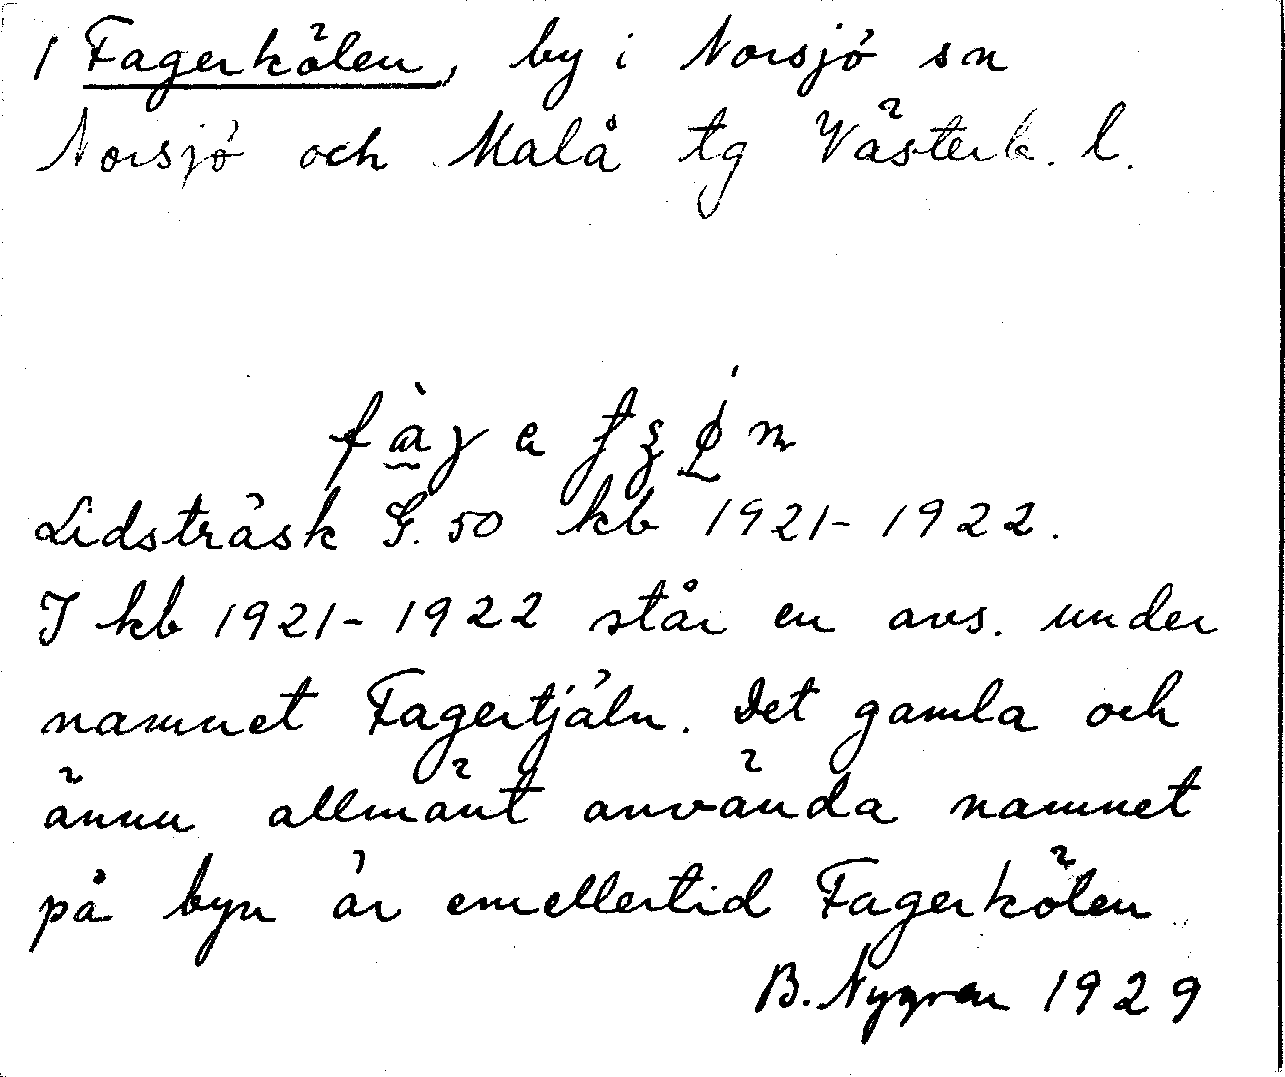 1 Fagerkölen, by i Norsjö sn
Norsjö och Malå tg Västerb. l.
Lidsträsk G. 50 kb 1921-1922.
I kb 1921-1922 står en avs. under
namnet Fagertjäln. Det gamla och
ännu allmänt använda namnet
på byn är emellertid Fagerkölen
B. Nygren 1929